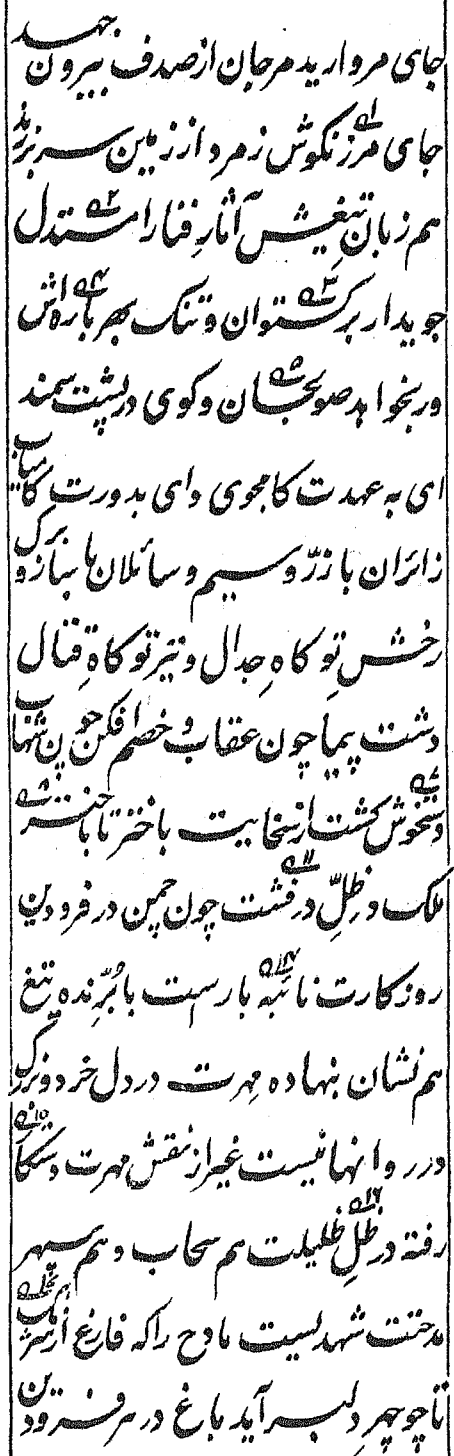 جای مروارید مرجان از صدف بیرون جهد
جای مرزنگوش زمرد از زمین سر برزند
هم زبان تیغش آثار فنا را مستدل
جو بدار برکستوان و تنک بهر باره‌اش
ور بخواهد صولجان وکوی در پشت سمند
ای به عهدت کامجوی وای بدورت کامیاب
زائران با زرّ و سیم و سائلان با ساز و برک
رخشِ تو کاهِ جدال و تیرِ تو کاهِ قتال
دشت پیما چون عقاب و خصم افکن چون شهاب
دستخوش کشت از سخایت باختر تا باختر
ملک در ظلِّ درفشت چون چمن در فرودین
روزکارت نائبه بارست با بُرّنده تیغ
هم نشان بنهاده مهرت در دل خرد و بزرک
در روانها نیست غیر از نقش مهرت
رفته در ظلِ ظلیلت هم سحاب و هم سپهر
مدحتت شهدیست مادح را که فارغ از
تا چو چهر دلبر آید باغ در هر فرودین